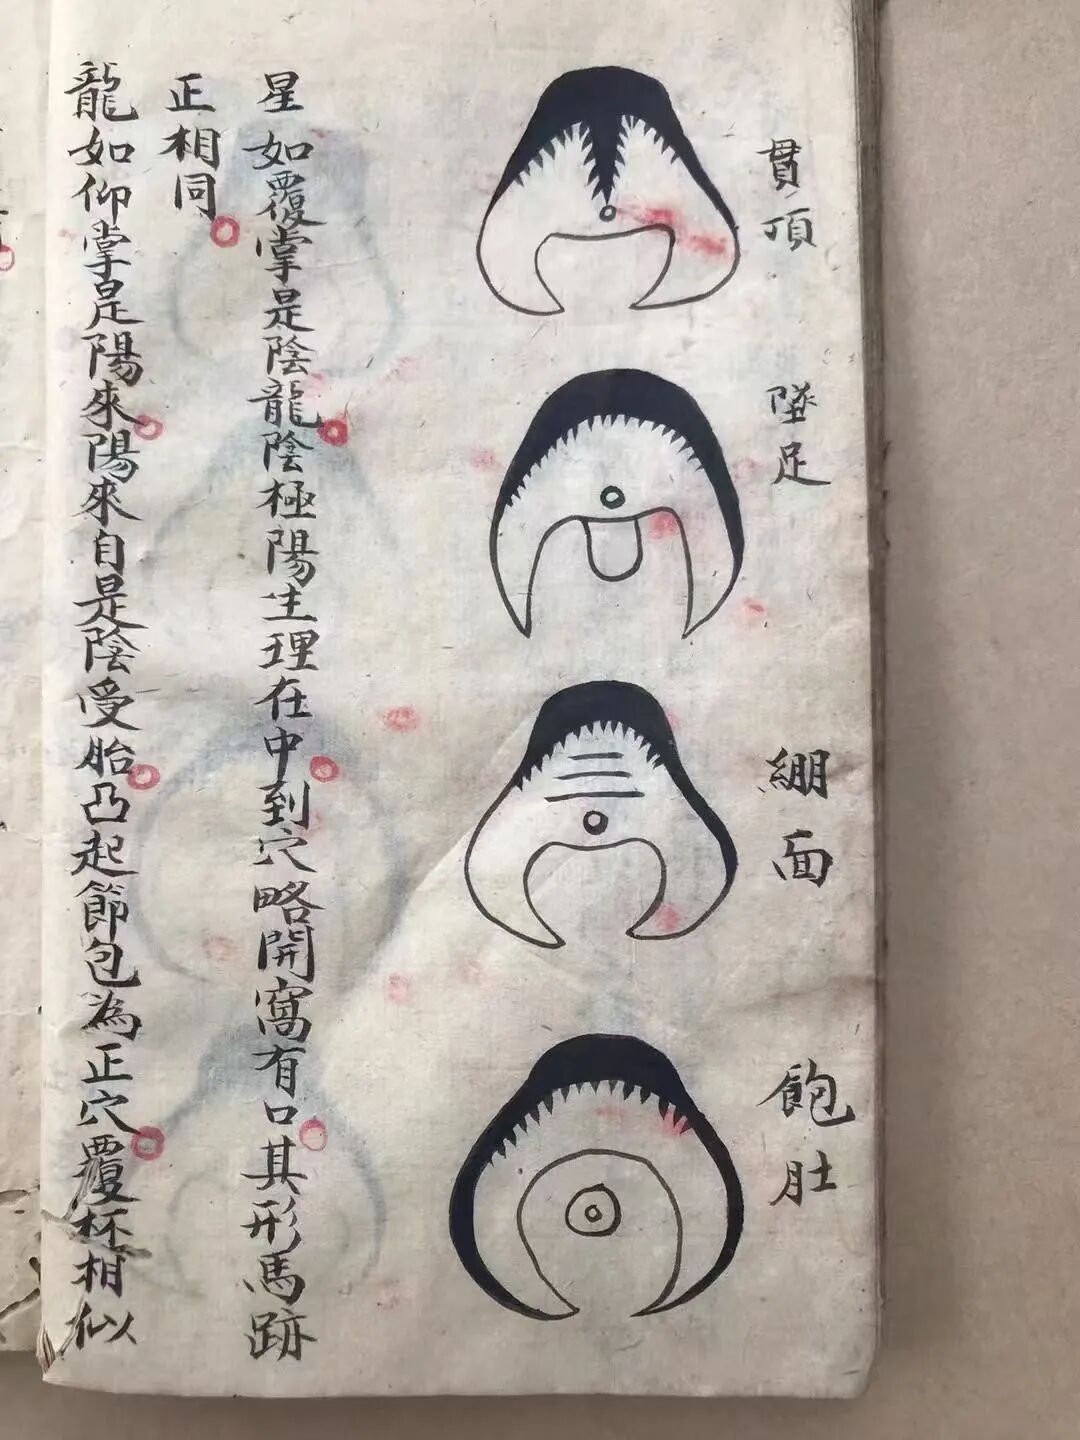 貫頂
墜足
綳面
飽肚
星如覆掌是陰龍陰極陽生理在中到穴略開窩有口其形馬跡
正相同
龍如仰掌是陽來陽來自是陰受胎凸起節包為正穴覆杯相似